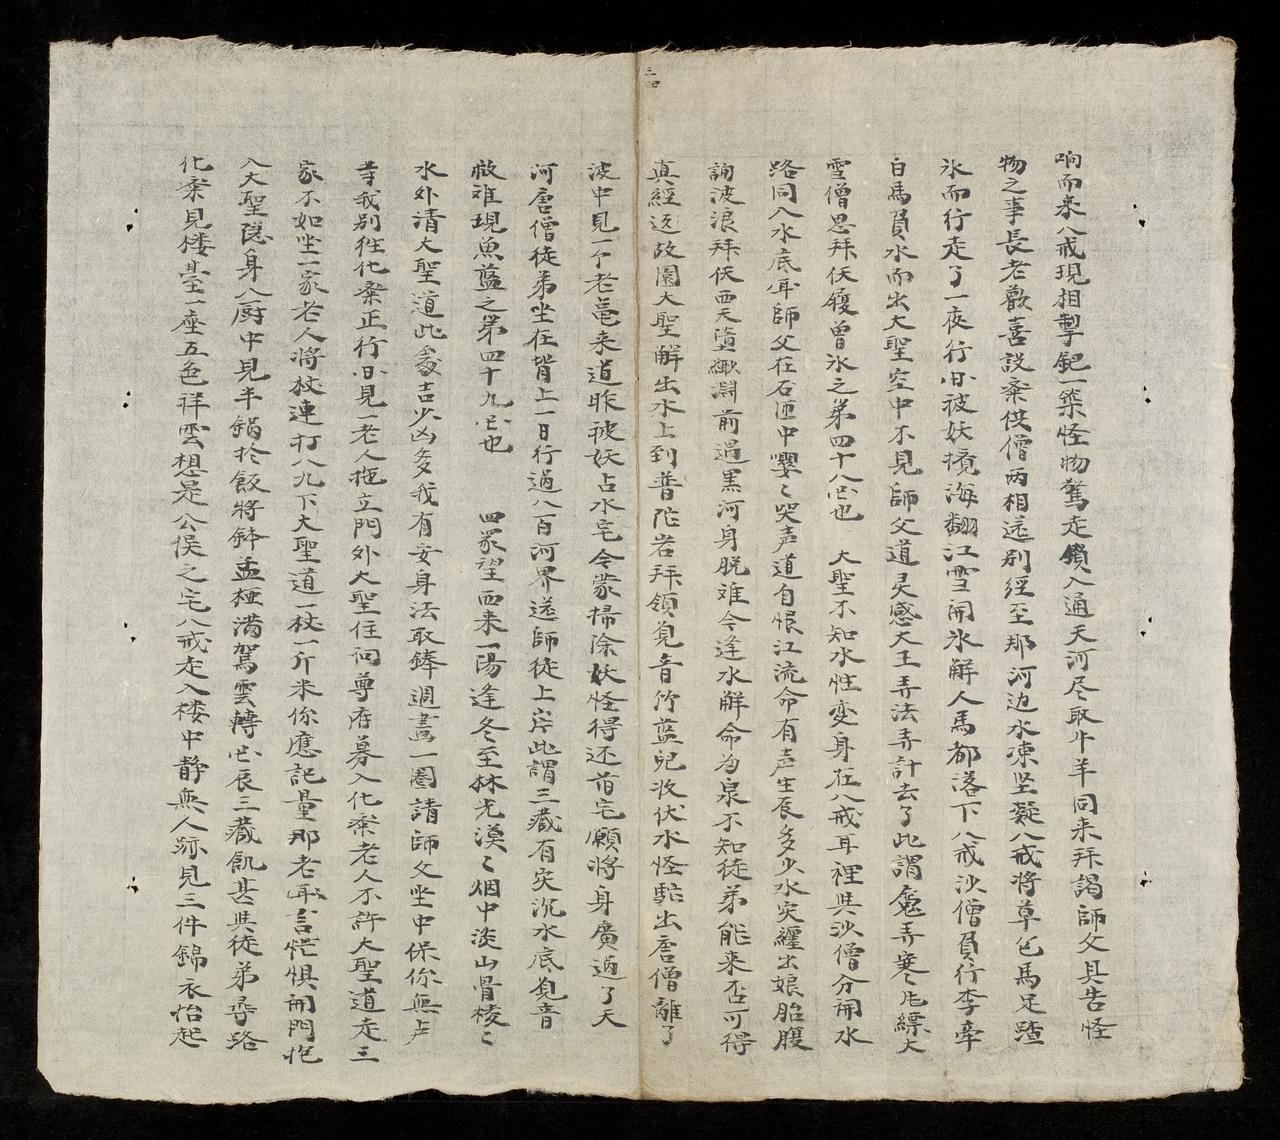 响而来八戒現相掣鈀一築怪物驚走鑽入通天河尽取牛羊回来拜謁師父具告怪
物之事長老歡喜設斋供僧两相送别經至那河边水凍坚凝八戒将草包馬足踏
氷而行走了一夜行被妖攪海翻江雪開氷解人馬都落下八戒沙僧負行李牵
白馬負水而出大聖空中不見師父道灵感大王弄法弄計去了此謂魔弄寒風飄大
雪僧思拜佛履曾氷之第四十八也 大聖不知水性变身在八戒耳裡與沙僧分開水
路同入水底師父在石匣中嚶〻哭声道自恨江流命有声生辰多少水灾纏出娘胎腹
詢波浪拜佛西天堕緲淵前過黑河身脱难今逢水解命為泉不知徒弟能来否可得
真經返故園大聖解出水上到普陀岩拜領覓音竹蓝兒收伏水怪馱出唐僧離了
二四
波中見一个老黿来道昨被妖占水宅今蒙掃除妖怪得还旧宅願将身廣過了天
河唐僧徒弟坐在背上一日行過八百河界送師徒上岸此謂三藏有灾沉水底覓音
救难現魚蓝之第四十九也 四眾望西来一陽逢冬至林光漠〻烟中淡山骨棱〻
水外清大聖道此處吉少凶多我有安身法取鋒週畫一圈請師父坐中保你無占
寺我别往化斋正行見一老人拖立門外大聖住问尊府募入化斋老人不許大聖道走三
家不如坐一家老人将杖連打八九下大聖道一杖一斤米你應記量那老言忙惧開門抱
入大聖隐身入厨中見半鍋於飯将鉢盂極满駕雲轉辰三藏飢甚與徒弟尋路
化斋見楼臺一座五色祥雲想是公侯之宅八戒走入楼中静無人跡見三件錦衣怡起